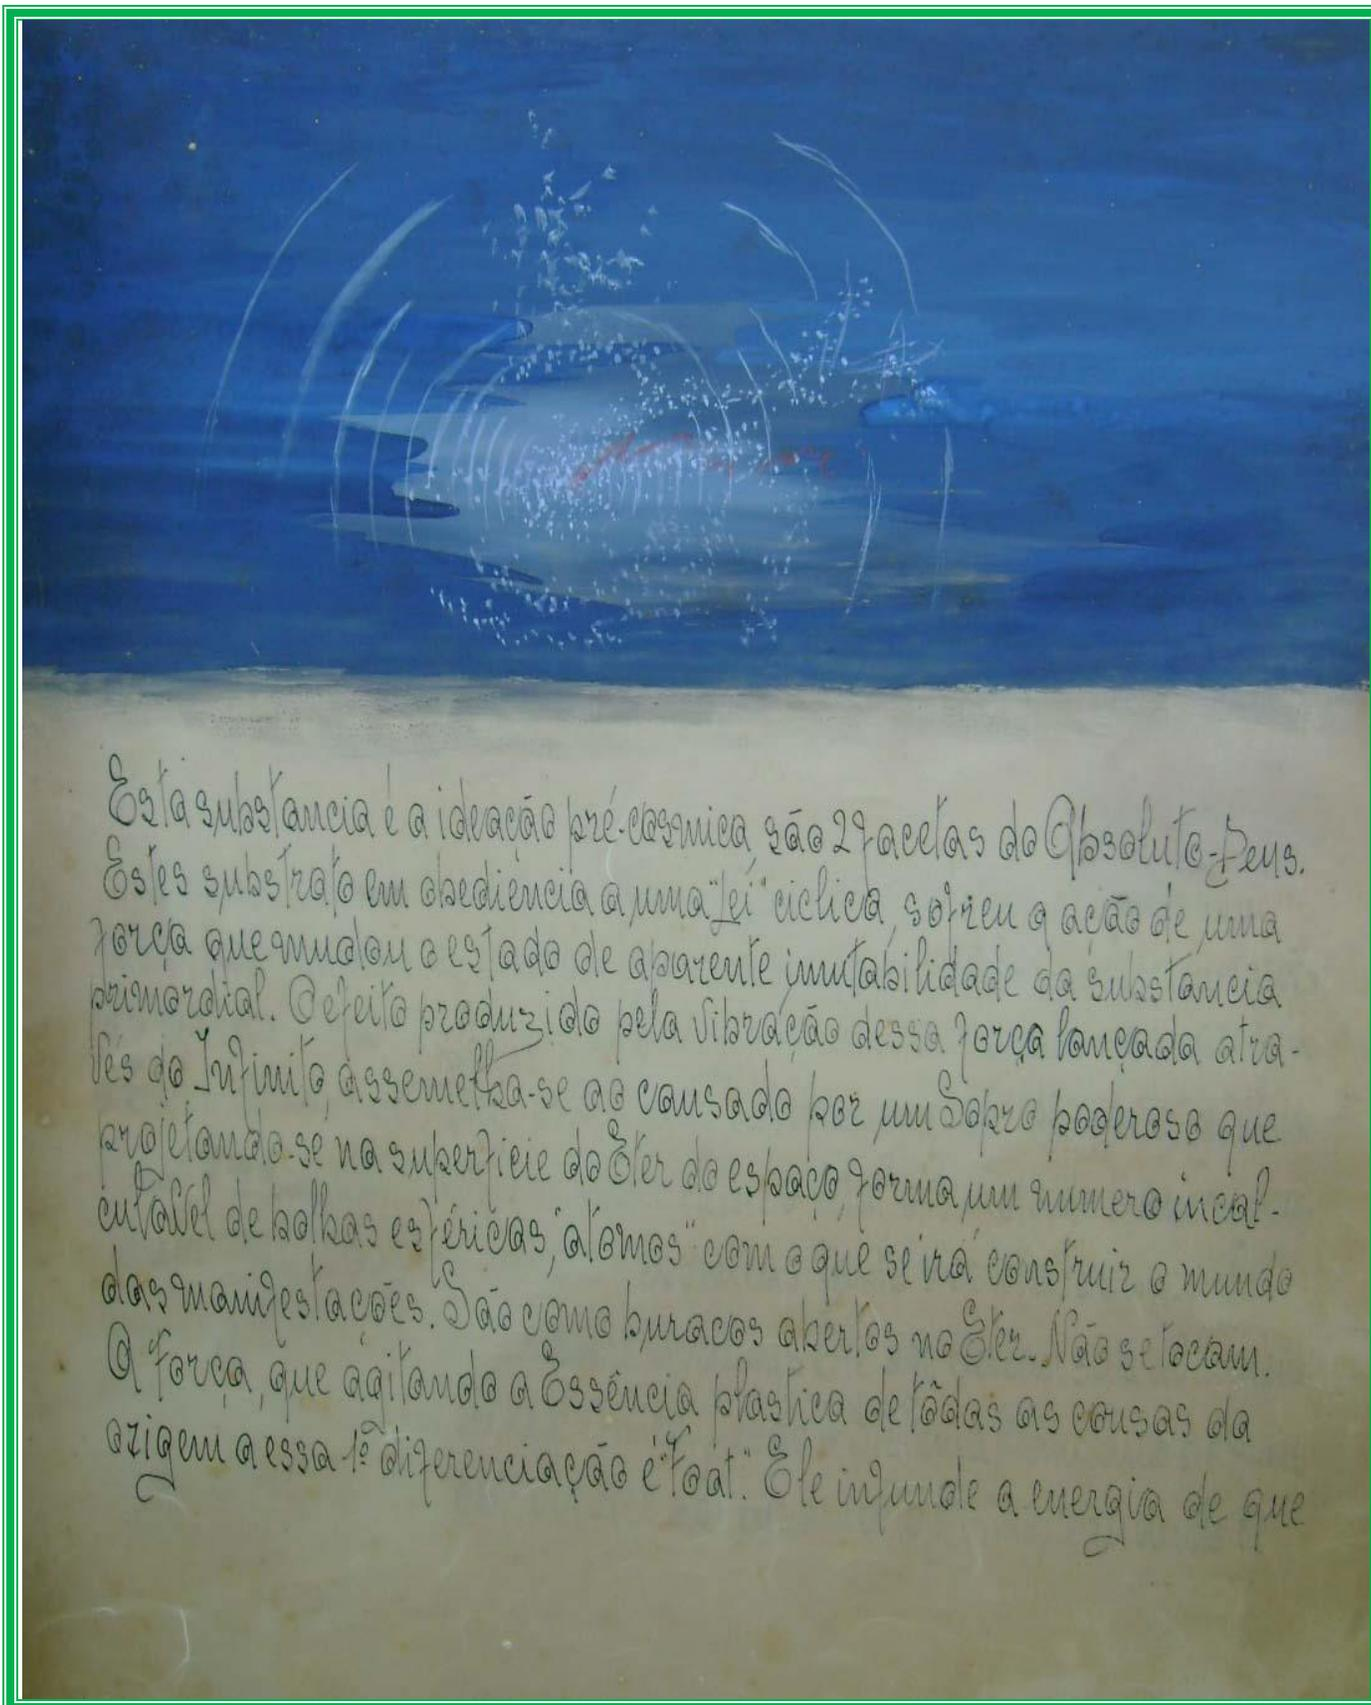 Esta substancia é a ideação pré-cosmica, são 2 facetas do Absoluto-Deus.
Estes substrato em obediência a uma "Lei" ciclica, sofreu a ação de uma
força que mudou o estado de aparente imutabilidade da substância
primordial. O efeito produzido pela vibração dessa força lançada atra-
vés do Infinito, assemelha-se ao causado por um Sopro poderoso que
projetando-se na superficie do Éter do espaço, forma um numero incal-
culavel de bolhas esféricas, "atomos" com o que se irá construir o mundo
das manifestações. São como buracos abertos no Éter. Não se tocam.
A força, que agitando a Essência plastica de tôdas as cousas da
origem a essa 1ª diferenciação é "Foat." Ele infunde a energia de que